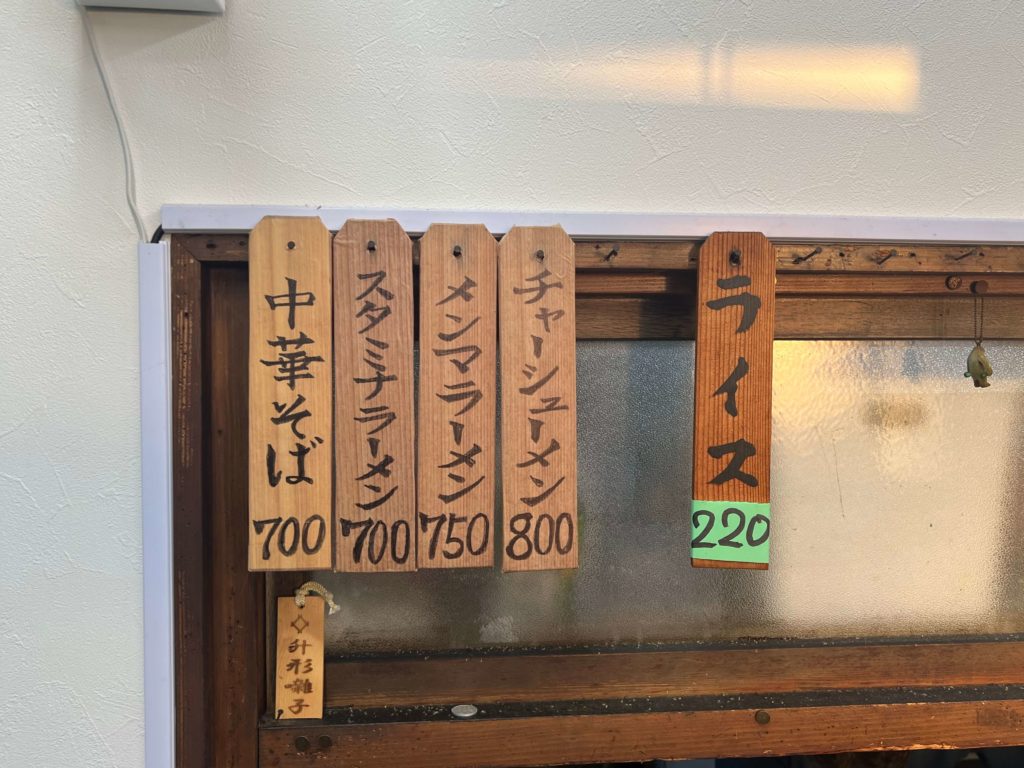 中華そば
700
スタミナラーメン
700
メンマラーメン
750
チャーシューメン
800
ライス
220
升形囃子